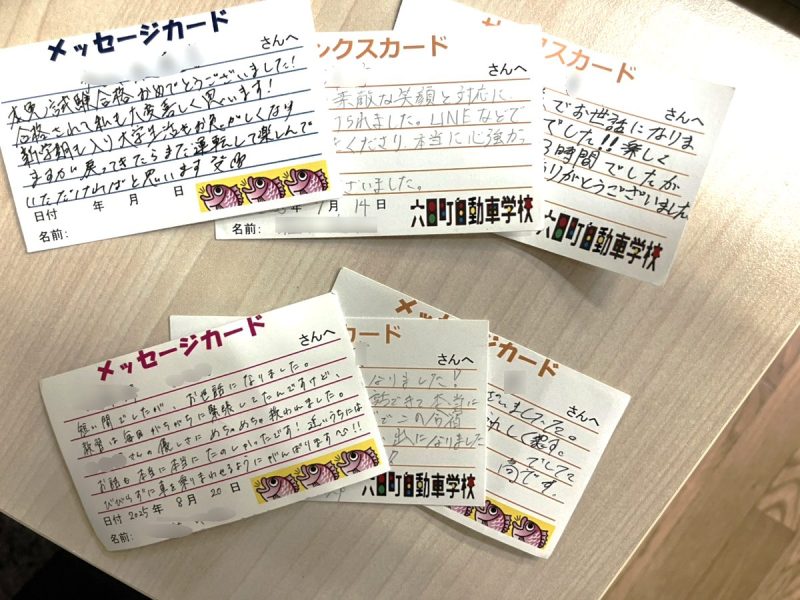 メッセージカード
さんへ
試験合格おめでとうございました!
合格されて私も大変嬉しく思います!
新学期も入り大学生活もお忙しくなり
ますが戻ってきたらまた運転して楽しんで
いただければと思います
日付 年 月 日
名前:
ックスカード
さんへ
素敵な笑顔と対応に
られました。LINEなどで
くださり、本当に心強か
ざいました。
月 14日
六日町自動車学校
スカード
さんへ
でお世話になりま
でした!!楽しく
3時間でしたが
りがとうございました
六日町自動車学校
メッセージカード
さんへ
短い間でしたが、お世話になりました。
教習は毎日がちがちに緊張してたんですけど、
さんの優しさにめちゃめちゃ救われました。
お話も本当に本当にたのしかったです!近いうちには
びびらずに車を乗りまわせるようにがんばります!!
日付 2025年 8月 20日
名前:
カード
さんへ
なりました!
できて本当に
でこの合宿
出になりました
六日町自動車学校
メッセージカード
さんへ
ざいました。
でしたて
です。